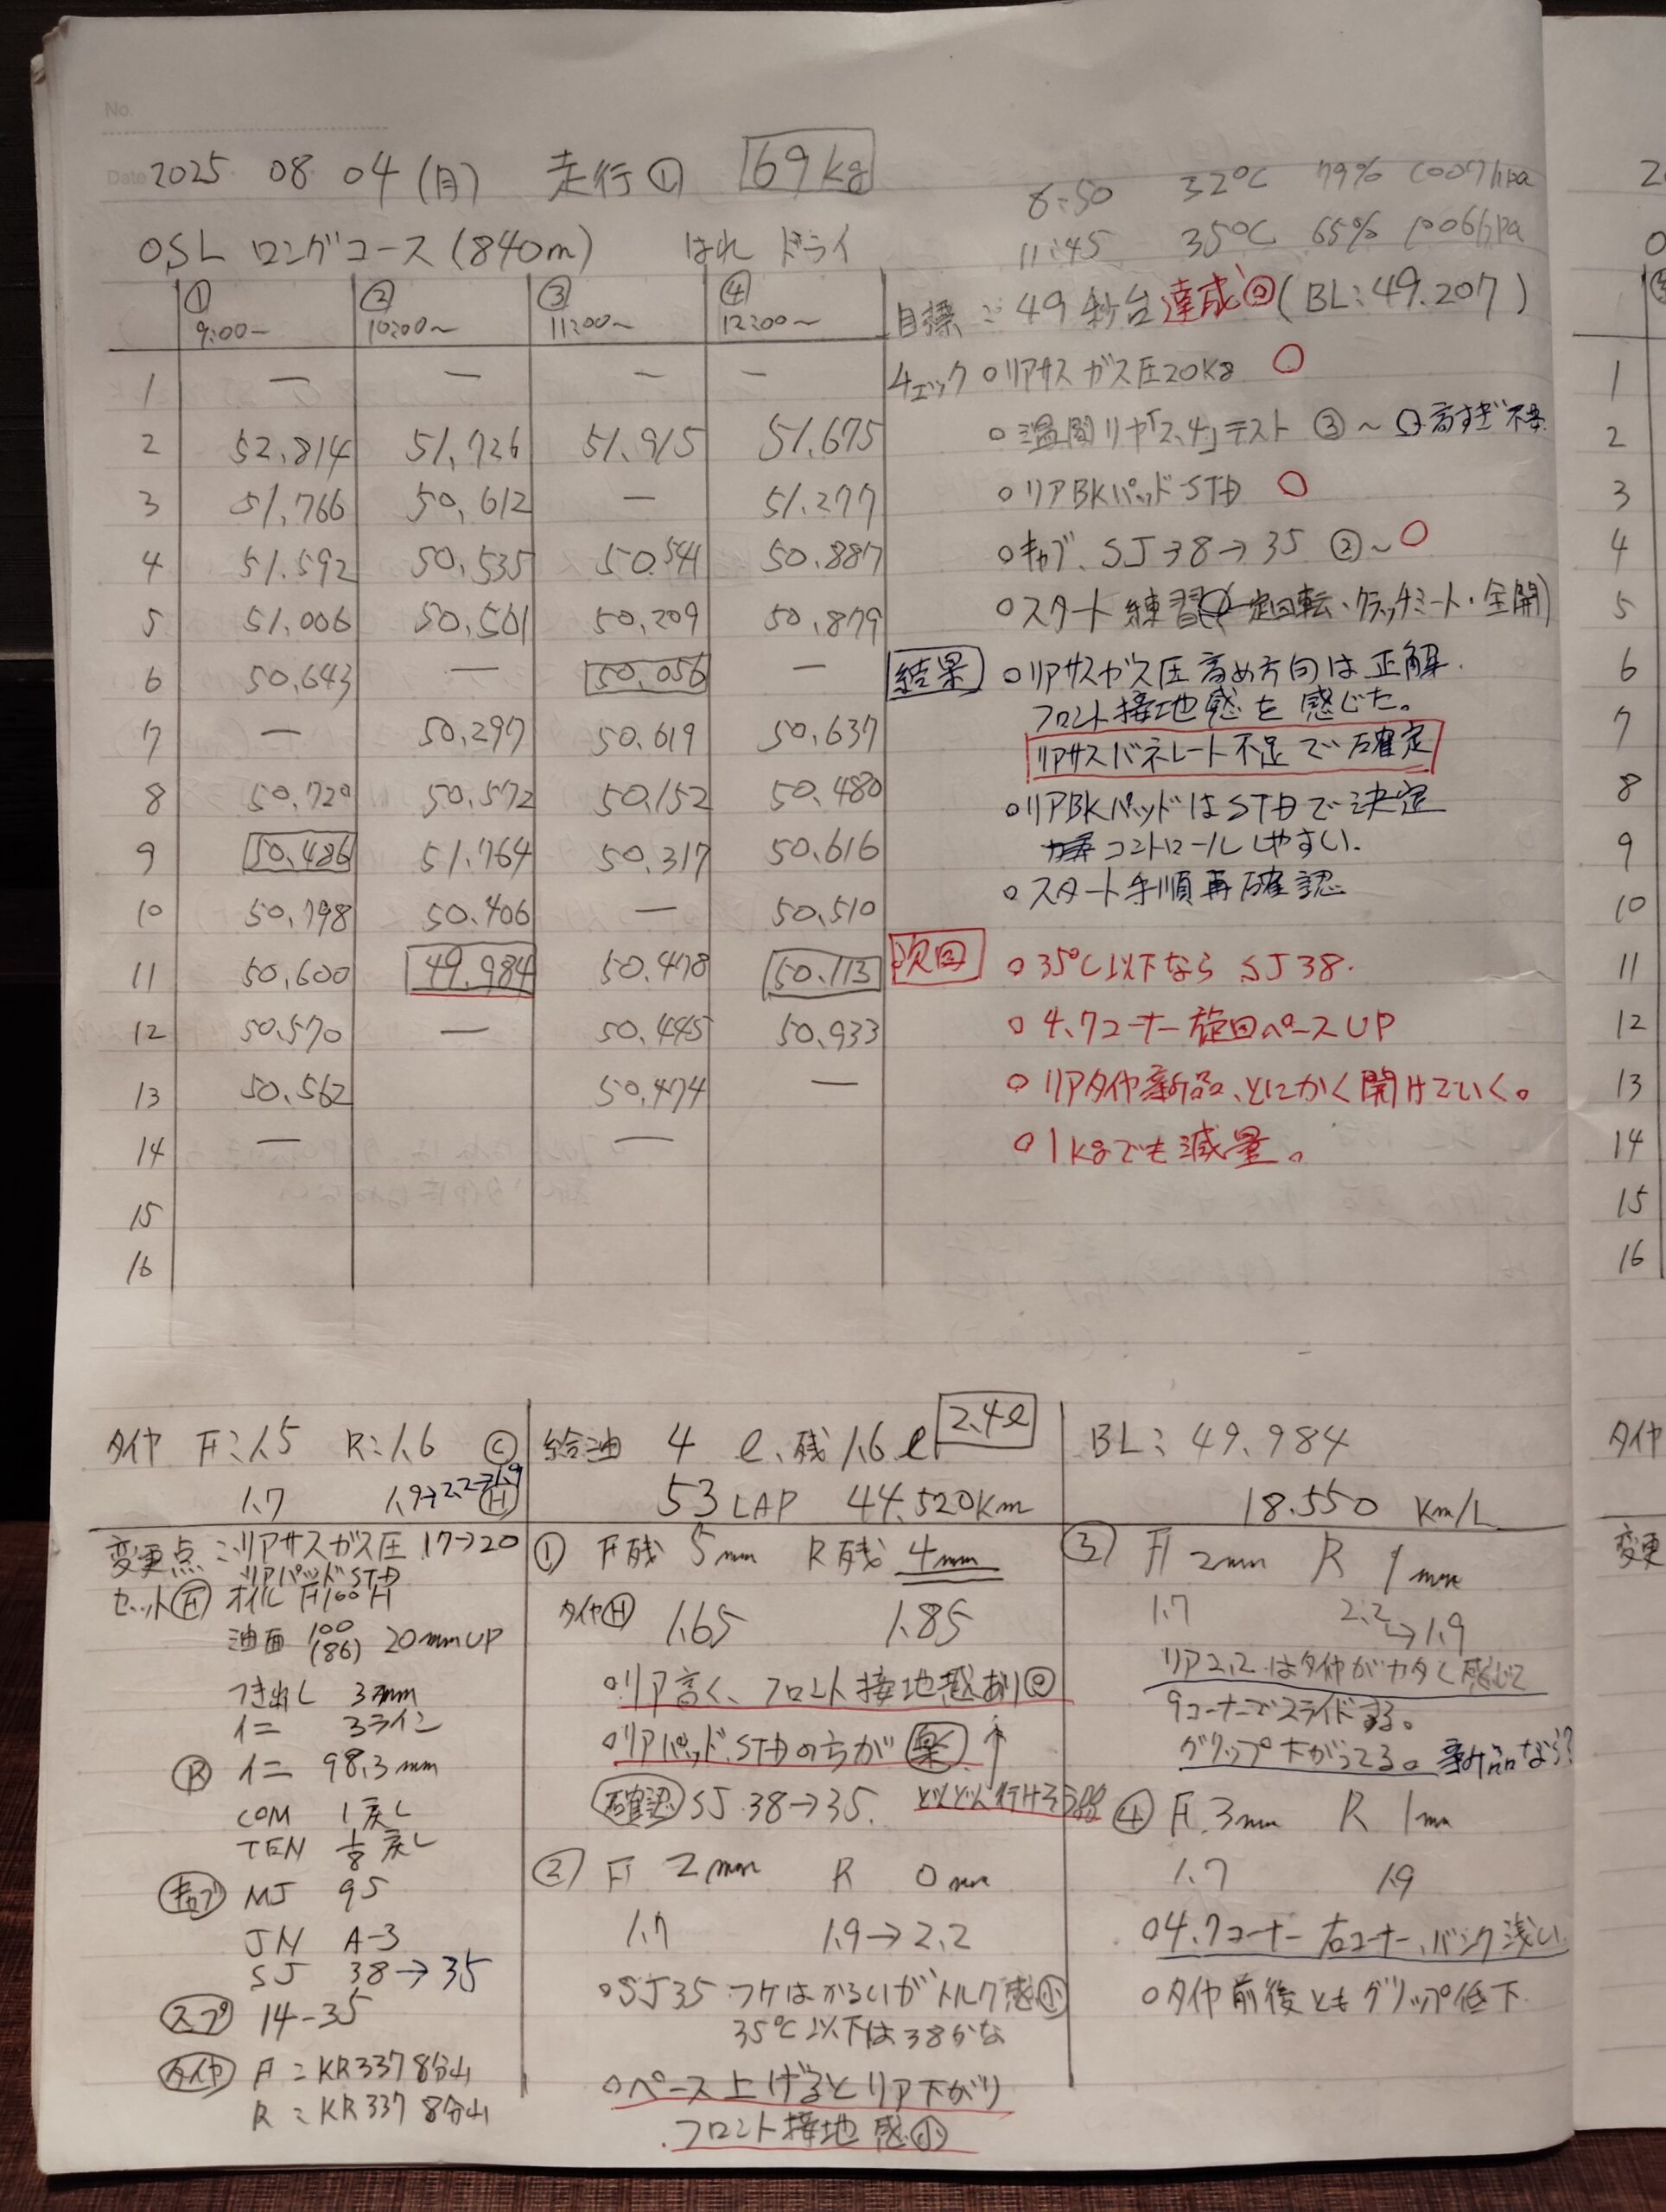 No.
Date 2025 08 04 (月) 走行① 69kg
8:50 32℃ 79% 1007hpa
11:45 35℃ 65% 1006hpa
OSL ロングコース (840m) はれ ドライ
① ② ③ ④
9:00~ 10:00~ 11:00~ 12:00~
1 — — — —
2 52.814 51.726 51.915 51.675
3 51.766 50.612 — 51.277
4 51.592 50.535 50.541 50.887
5 51.006 50.501 50.209 50.879
6 50.643 — 50.056 —
7 — 50.297 50.619 50.637
8 50.720 50.572 50.152 50.480
9 50.486 51.764 50.317 50.616
10 50.798 50.406 — 50.510
11 50.600 49.984 50.478 50.113
12 50.570 — 50.445 50.933
13 50.562 50.474 —
14 — —
15
16
目標:49秒台達成 (BL:49.207)
チェック ○リアサス ガス圧20kg ○
○温間リヤ「2.4」テスト ③~ 高すぎ
○リアBKパッドSTD ○
○キャブ. SJ 38→35 ②~○
○スタート練習(一定回転・クラッチミート・全開)
結果 ○リアサスガス圧高め方向は正解.
フロント接地感を感じた。
リアサスバネレート不足で確定
○リアBKパッドはSTDで決定
コントロールしやすい.
○スタート手順再確認
次回 ○35℃以下なら SJ38.
○4.7コーナー旋回ペースUP
○リアタイヤ新品、とにかく開けていく。
○1kgでも減量。
タイヤ F:1.5 R:1.6 Ⓒ
1.7 1.9→2.2→1.9 Ⓗ
給油 4 ℓ、残1.6ℓ 2.4ℓ
53LAP 44.520Km
BL:49.984
18.550 Km/L
変更点:リアサスガス圧 17→20
リアパッドSTD
セットⒻ オイル F100H
油面 100 (86) 20mmUP
つき出し 3mm
イニ 3ライン
Ⓡ イニ 98.3mm
COM 1戻し
TEN 1/8戻し
キャブ MJ 95
JN A-3
SJ 38→35
スプ 14-35
タイヤ F:KR337 8分山
R:KR337 8分山
① F残 5mm R残 4mm
タイヤⒽ 1.65 1.85
○リア高く、フロント接地感あり
○リアパッド.STDの方が楽
確認 SJ.38→35.
② F 2mm R 0mm
1.7 1.9→2.2
○SJ35 フケはかるいがトルク感小
35℃以下は38かな
○ペース上げるとリア下がり
フロント接地感小
③ F 2mm R 1mm
1.7 2.2→1.9
リア2.2はタイヤがカタく感じて
9コーナーでスライドする。
グリップ下がってる。新品なら?
④ F.3mm R 1mm
1.7 1.9
○4.7コーナー右コーナー、バンク浅い
○タイヤ前後ともグリップ低下
2
0
1
2
3
4
5
6
7
8
9
10
11
12
13
14
15
16
タイヤ
変更